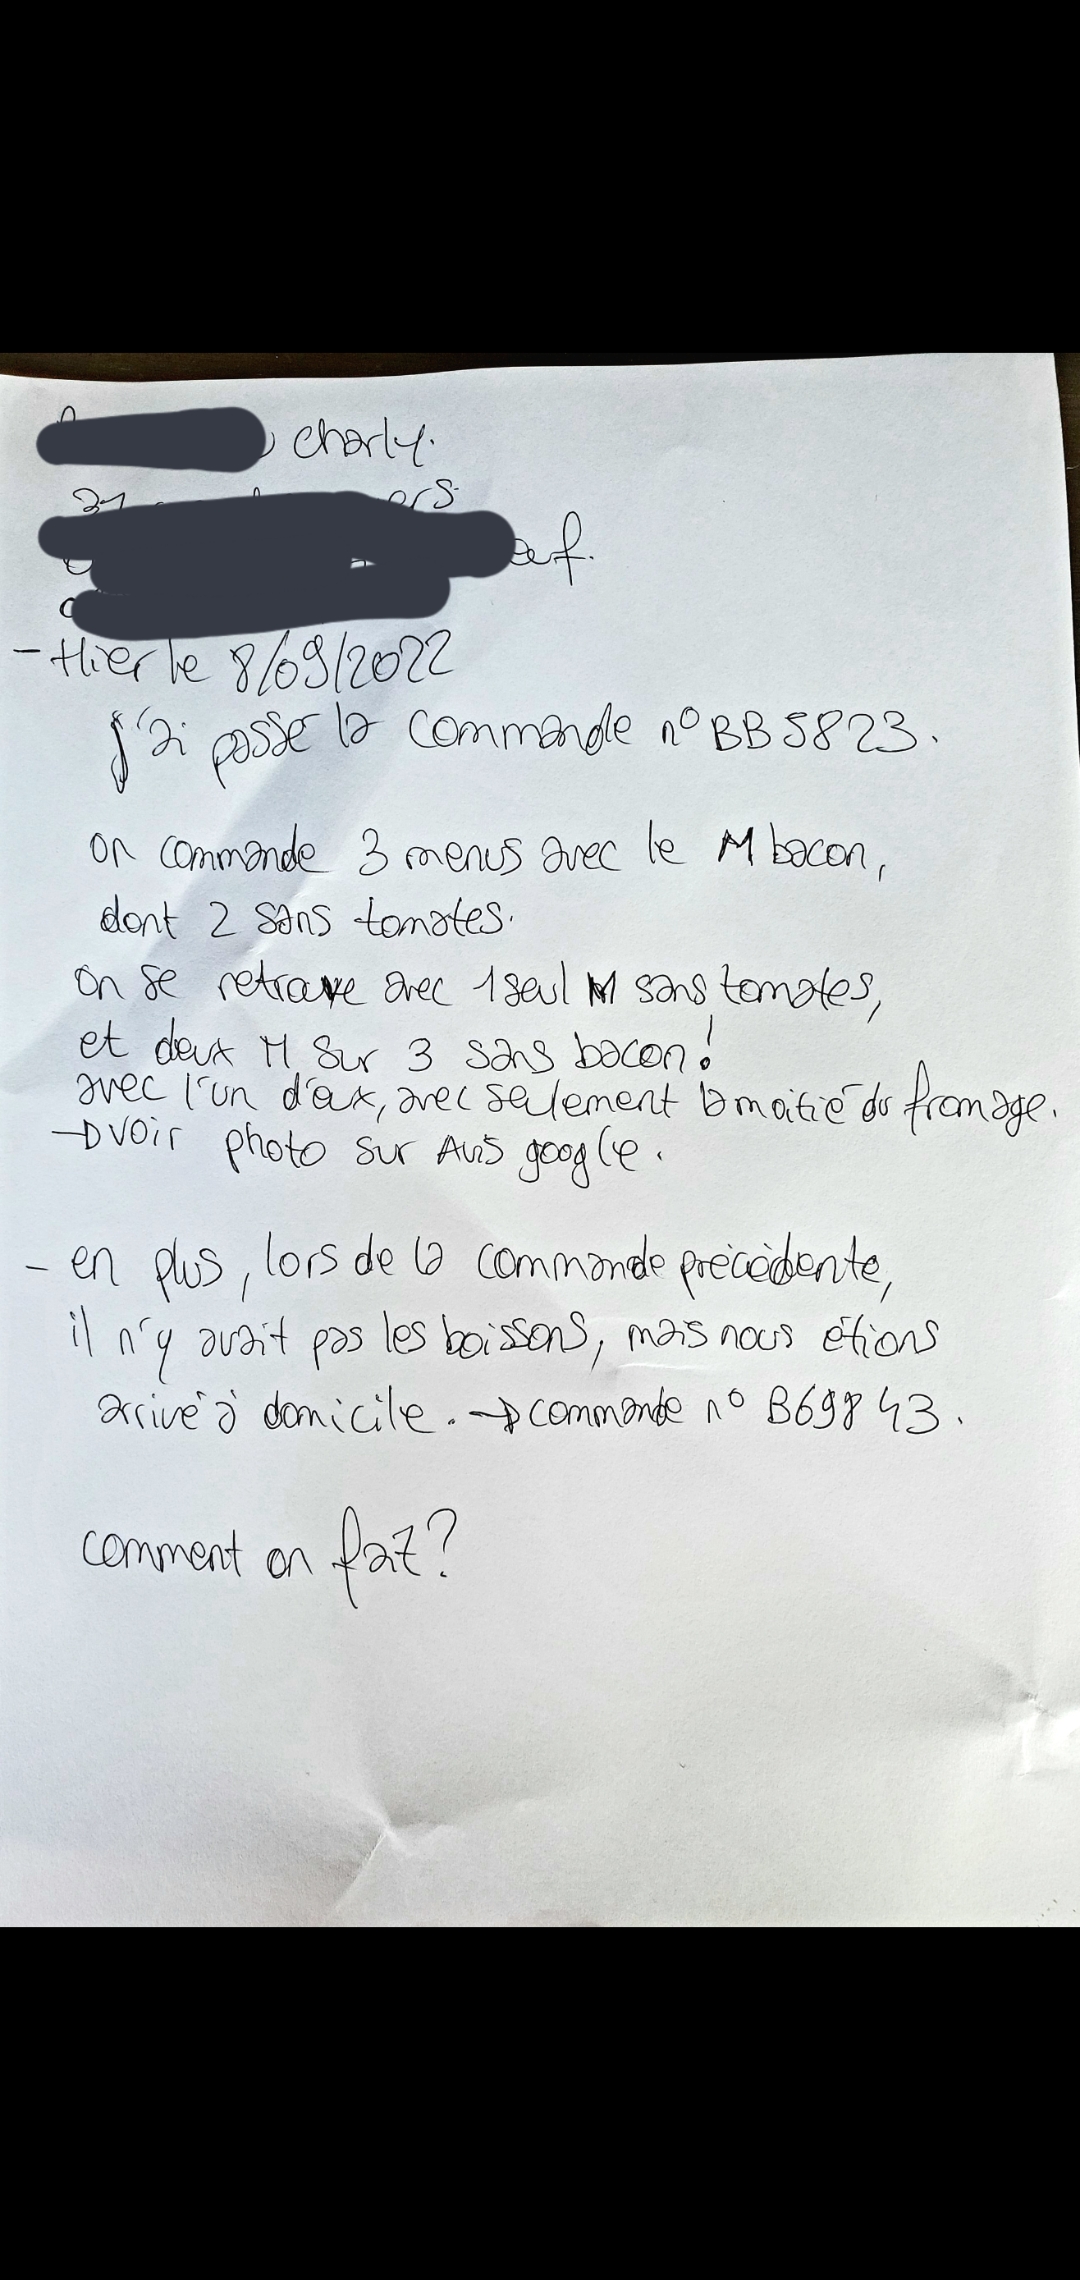 charly.
- Hier le 8/09/2022
j'ai passé la commande n° BB5823.
on commande 3 menus avec le M bacon,
dont 2 sans tomates.
on se retrouve avec 1 seul M sans tomates,
et deux M sur 3 sans bacon!
avec l'un d'eux, avec seulement la moitié du fromage.
→ voir photo sur Avis google.
- en plus, lors de la commande précèdente,
il n'y avait pas les boissons, mais nous étions
arrivé à domicile. → commande n° B69843.
comment on fait?